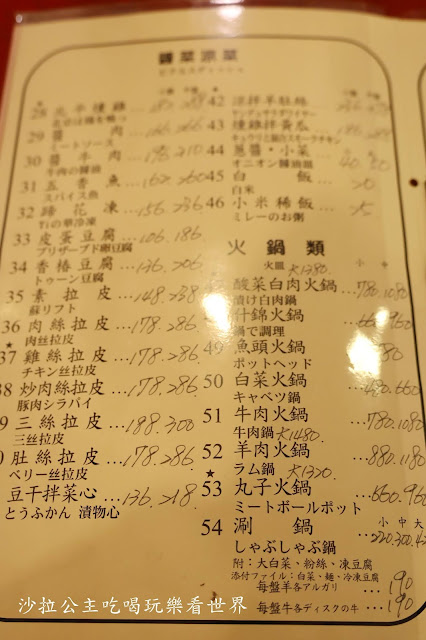 醬菜涼菜
28 北平燻雞
29 醬肉 ...166.266
ミートソース
30 醬牛肉 ...178.210
牛肉の醤油
31 五香魚 ...162.260
スパイス魚
32 蹄花凍 ...156.236
Yiの華冷凍
33 皮蛋豆腐 ...106.186
プリザーブド卵豆腐
34 香椿豆腐 ...136.206
トゥーン豆腐
35 素拉皮 ...148.238
蘇リフト
36 肉絲拉皮 ...178.286
★ 肉丝拉皮
37 雞絲拉皮 ...178.286
チキン丝拉皮
38 炒肉絲拉皮 ...178.286
豚肉シラバイ
9 三絲拉皮 ...188.300
三丝拉皮
0 肚絲拉皮 ...178.286
ベリー丝拉皮
豆干拌菜心 ...136.218
とうふかん 漬物心
42 涼拌羊肚絲
43 燻雞拌黃瓜
44 蔥醬・小菜
45 白飯
白米
46 小米稀飯
ミレーのお粥
火鍋類
酸菜白肉火鍋 ...780.1080
漬け白肉鍋
什錦火鍋
鍋で調理
49 魚頭火鍋
ポットヘッド
50 白菜火鍋 ...480.660
キャベツ鍋
51 牛肉火鍋 ...780.1080
牛肉鍋 大1480
52 羊肉火鍋 ...880.1180
★ ラム鍋 大1320
53 丸子火鍋 ...660.960
ミートボールポット
54 涮鍋 小中大
しゃぶしゃぶ鍋
附：大白菜、粉絲、凍豆腐
添付ファイル：白菜、麺、冷凍豆腐
每盤羊各アルガリ ...190
每盤牛各ディスクの牛 ...190
沙拉公主吃喝玩樂看世界